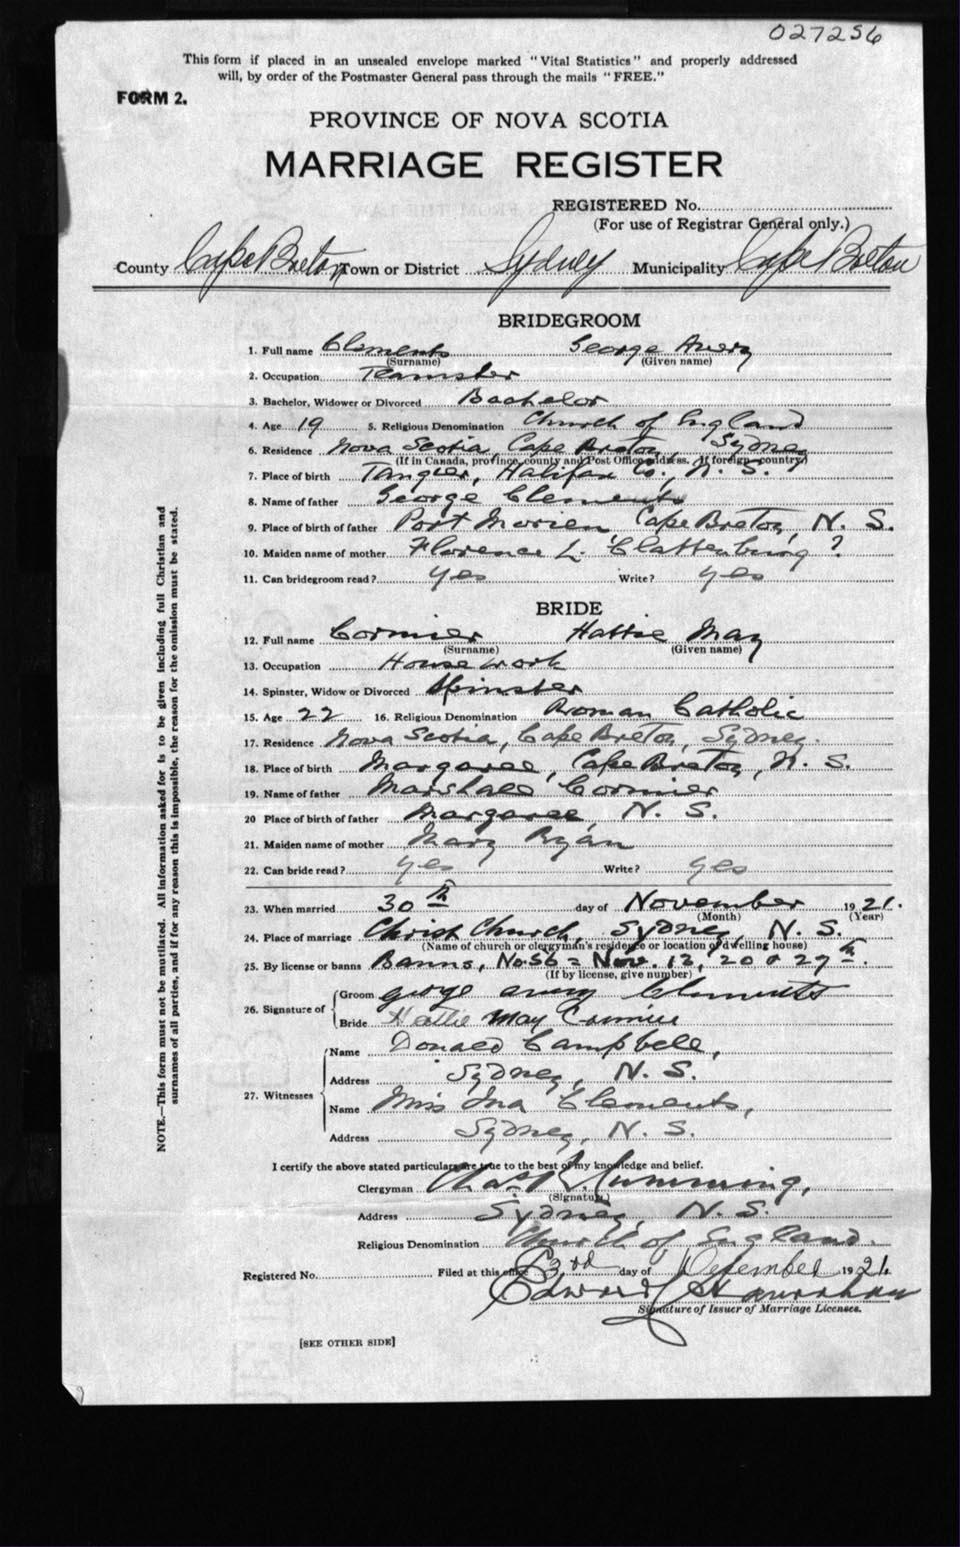 027256
This form if placed in an unsealed envelope marked "Vital Statistics" and properly addressed
will, by order of the Postmaster General pass through the mails "FREE."
FORM 2.
PROVINCE OF NOVA SCOTIA
MARRIAGE REGISTER
REGISTERED No.
(For use of Registrar General only.)
County Cape Breton Town or District Sydney Municipality Cape Breton
BRIDEGROOM
1. Full name Clements George Avery
(Surname) (Given name)
2. Occupation Teamster
3. Bachelor, Widower or Divorced Bachelor
4. Age 19 5. Religious Denomination Church of England
6. Residence Nova Scotia, Cape Breton, Sydney
(If in Canada, province, county and Post Office address. If foreign country)
7. Place of birth Tangier, Halifax Co., N. S.
8. Name of father George Clements
9. Place of birth of father Port Morien, Cape Breton, N. S.
10. Maiden name of mother Florence L. Clattenburg ?
11. Can bridegroom read? yes Write? yes
BRIDE
12. Full name Cormier Hattie May
(Surname) (Given name)
13. Occupation House work
14. Spinster, Widow or Divorced Spinster
15. Age 22 16. Religious Denomination Roman Catholic
17. Residence Nova Scotia, Cape Breton, Sydney.
18. Place of birth Margaree, Cape Breton, N. S.
19. Name of father Marshall Cormier
20 Place of birth of father Margaree, N. S.
21. Maiden name of mother Mary Ryan
22. Can bride read? yes Write? yes
23. When married 30th day of November 1921.
(Month) (Year)
24. Place of marriage Christ Church, Sydney, N. S.
(Name of church or clergyman's residence or location of dwelling house)
25. By license or banns Banns, No. 56 = Nov. 13, 20 & 27th.
(If by license, give number)
26. Signature of Groom george avery Clements
Bride Hattie May Cormier
27. Witnesses Name Donald Campbell,
Address Sydney, N. S.
Name Miss Ina Clements,
Address Sydney, N. S.
I certify the above stated particulars are true to the best of my knowledge and belief.
Clergyman Chas. Cumming,
(Signature)
Address Sydney, N. S.
Religious Denomination Church of England.
Registered No. Filed at this office 3rd day of December 1921
Edward
Signature of Issuer of Marriage Licenses.
[SEE OTHER SIDE]
NOTE.—This form must not be mutilated. All information asked for is to be given including full Christian and
surnames of all parties, and if for any reason this is impossible, the reason for the omission must be stated.